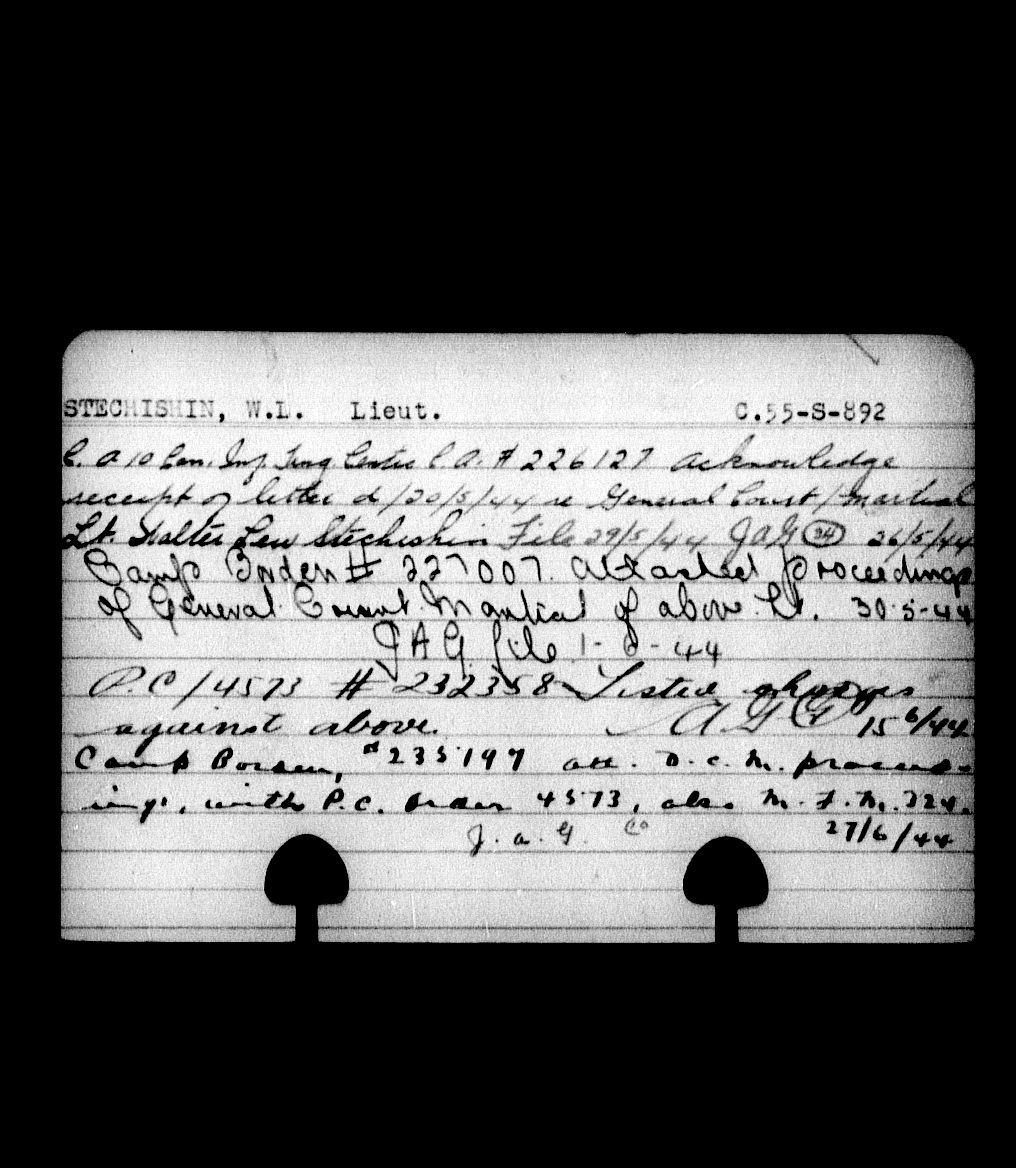 STECHISHIN, W.L. Lieut. C.55-S-892
C. A 10 Can. Inf. Trng Centre C.A. # 226127 acknowledge
receipt of letter d/20/5/44 re General Court/Martial
Lt. Walter Lew Stechishin File 29/5/44 JAG 34 26/5/44
Camp Borden # 227007. attached proceedings
of General Court Martial of above Lt. 30-5-44
JAG file 1-6-44
P.C/4573 # 232358 Listed charges
against above. 15 6/44
Camp Borden, # 235197 att. D.C.M. proceed-
ings, with P.C. Order 4573, also M.F.M. 724.
J.a.G. 27/6/44